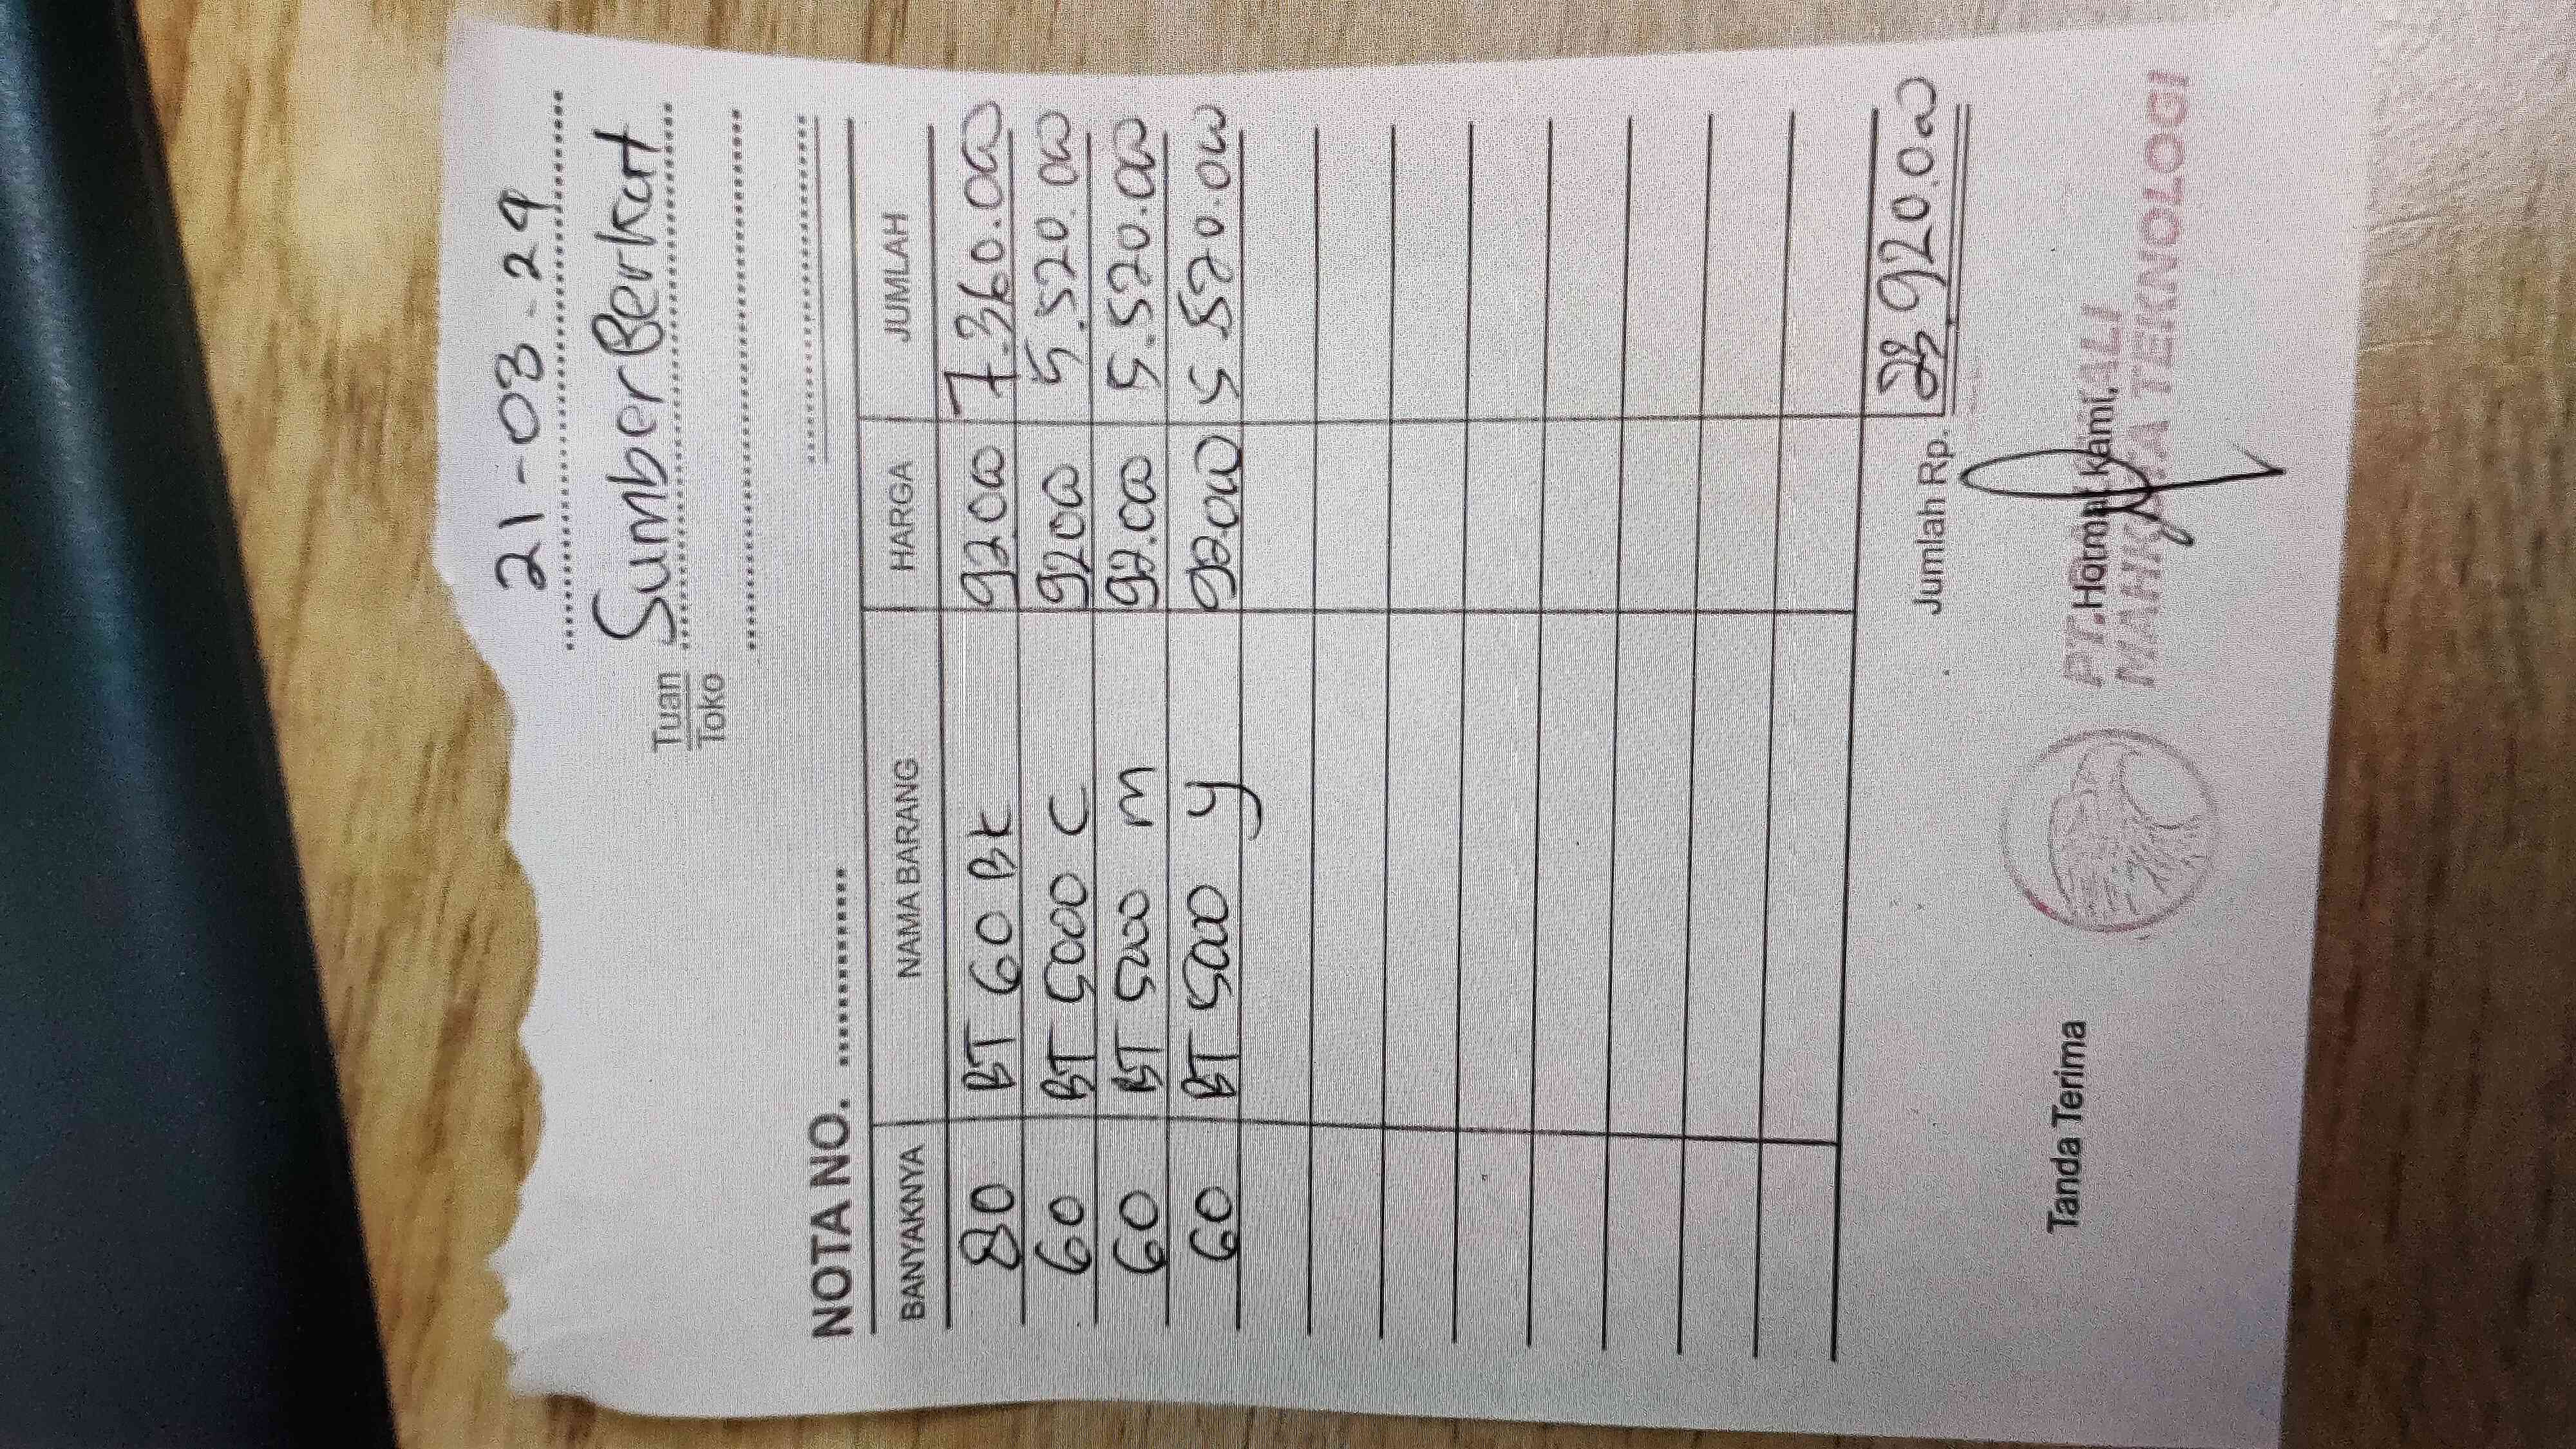 21-03-24
Tuan Sumber Berkat
Toko
NOTA NO.
BANYAKNYA NAMA BARANG HARGA JUMLAH
80 BT 60 BK 92.000 7.360.000
60 BT 5000 C 92000 5.520.000
60 BT 5000 M 92.000 5.520.000
60 BT 5000 Y 92000 5.520.000
Jumlah Rp. 23.920.000
Tanda Terima Hormat Kami,
PT. KALI
TEKNOLOGI